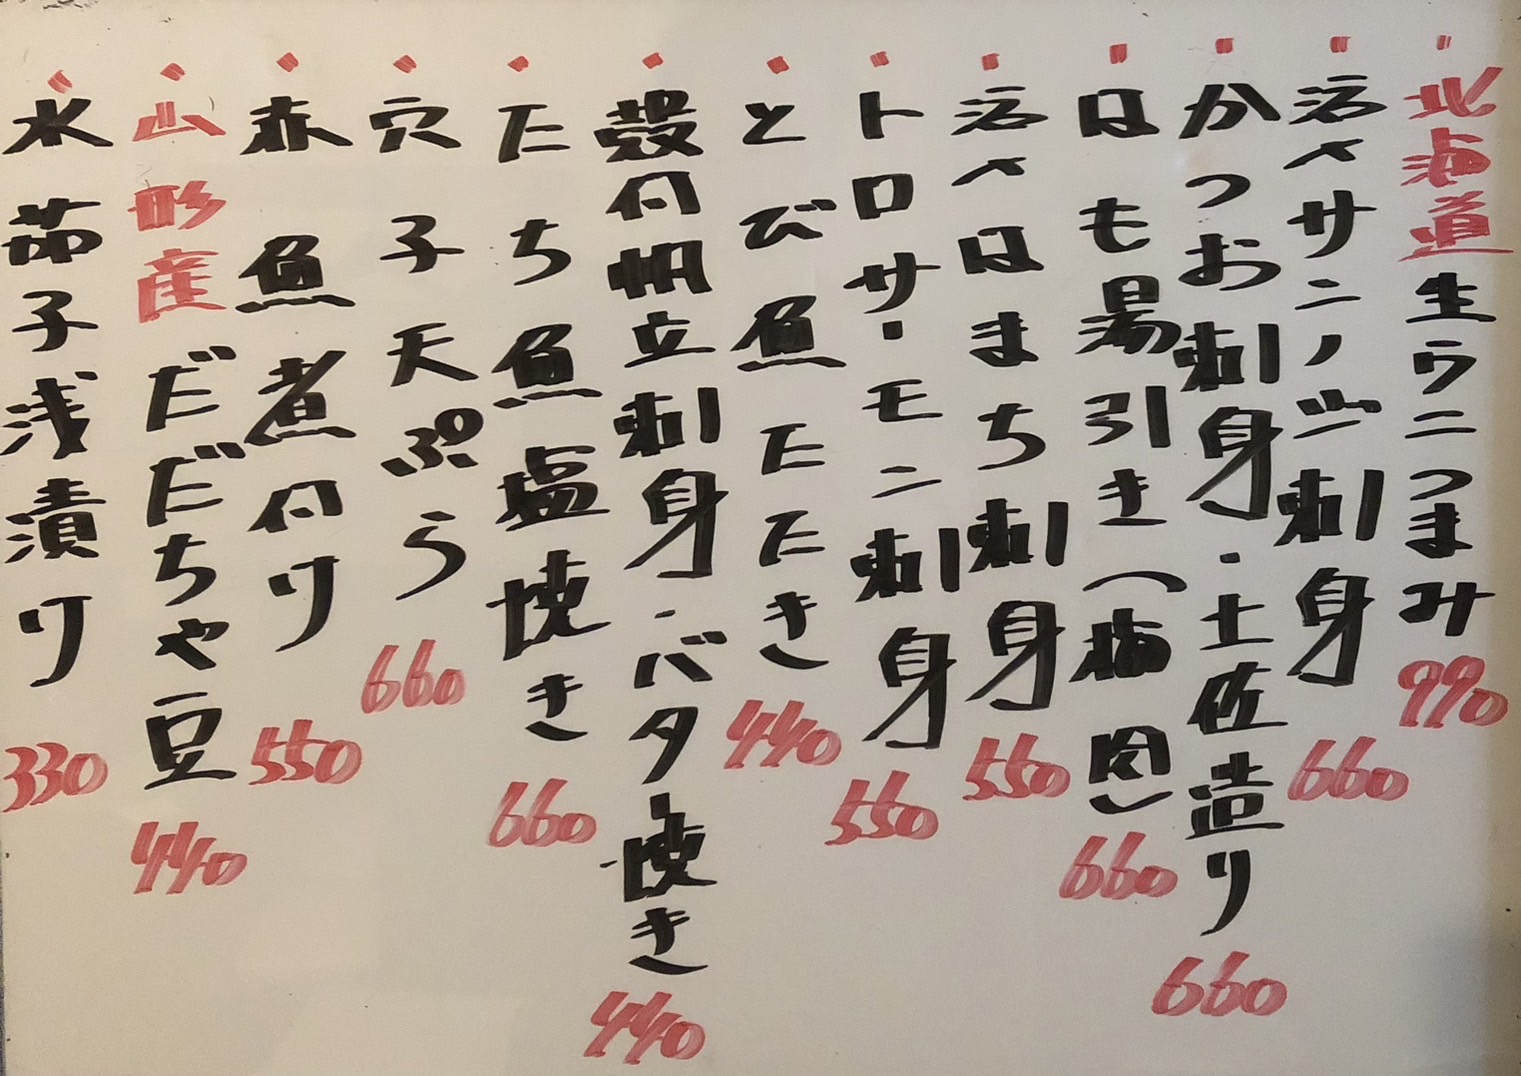 北海道生ウニつまみ 990
活〆サンノジ刺身 660
かつお刺身・土佐造り 660
はも湯引き(梅肉) 660
活〆はまち刺身 550
トロサーモン刺身 550
とび魚たたき 440
殻付帆立刺身・バター焼き 440
たち魚塩焼き 660
穴子天ぷら 660
赤魚煮付け 550
山形産だだちゃ豆 440
水茄子浅漬け 330